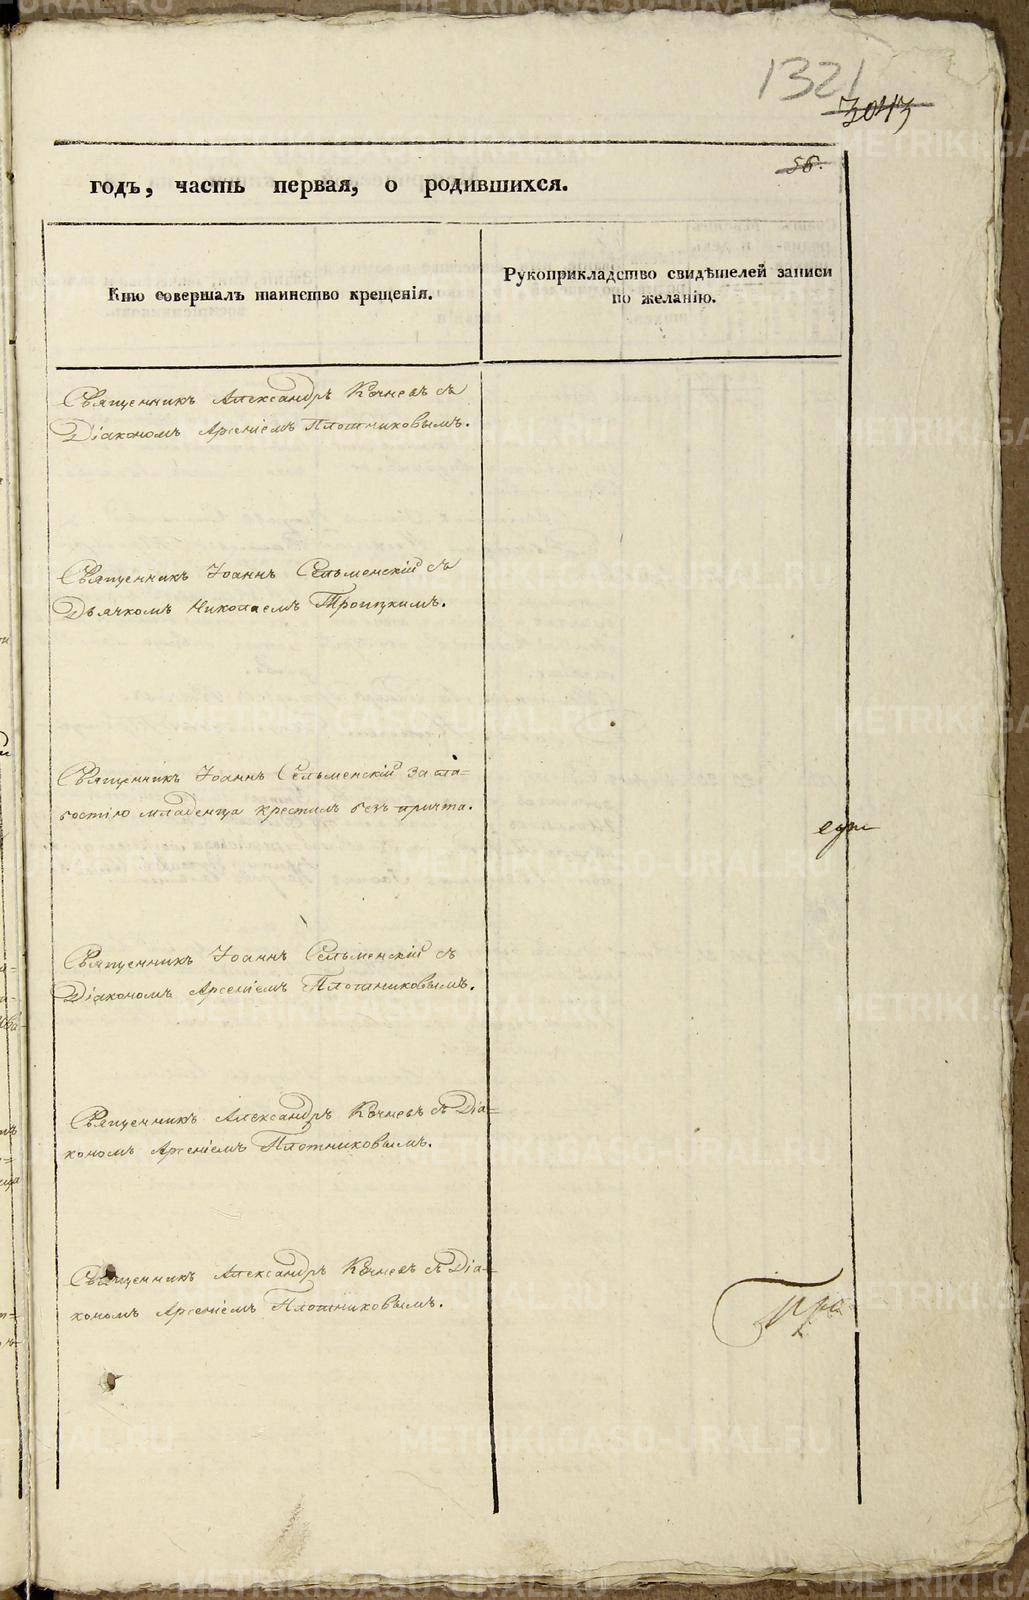 1321
3043
56.
годъ, часть первая, о родившихся.
Кто совершалъ таинство крещенія.
Рукоприкладство свидѣтелей записи
по желанію.
Священникъ Александръ Кочневъ съ
Діакономъ Арсеніемъ Плотниковымъ.
Священникъ Іоаннъ Сельменскій съ
Дьячкомъ Николаемъ Троицкимъ.
Священникъ Іоаннъ Сельменскій за сла=
бостію младенца крестилъ безъ причта.
Священникъ Іоаннъ Сельменскій съ
Діакономъ Арсеніемъ Плотниковымъ.
Священникъ Александръ Кочневъ съ Діа=
кономъ Арсеніемъ Плотниковымъ.
Священникъ Александръ Кочневъ съ Діа=
кономъ Арсеніемъ Плотниковымъ.